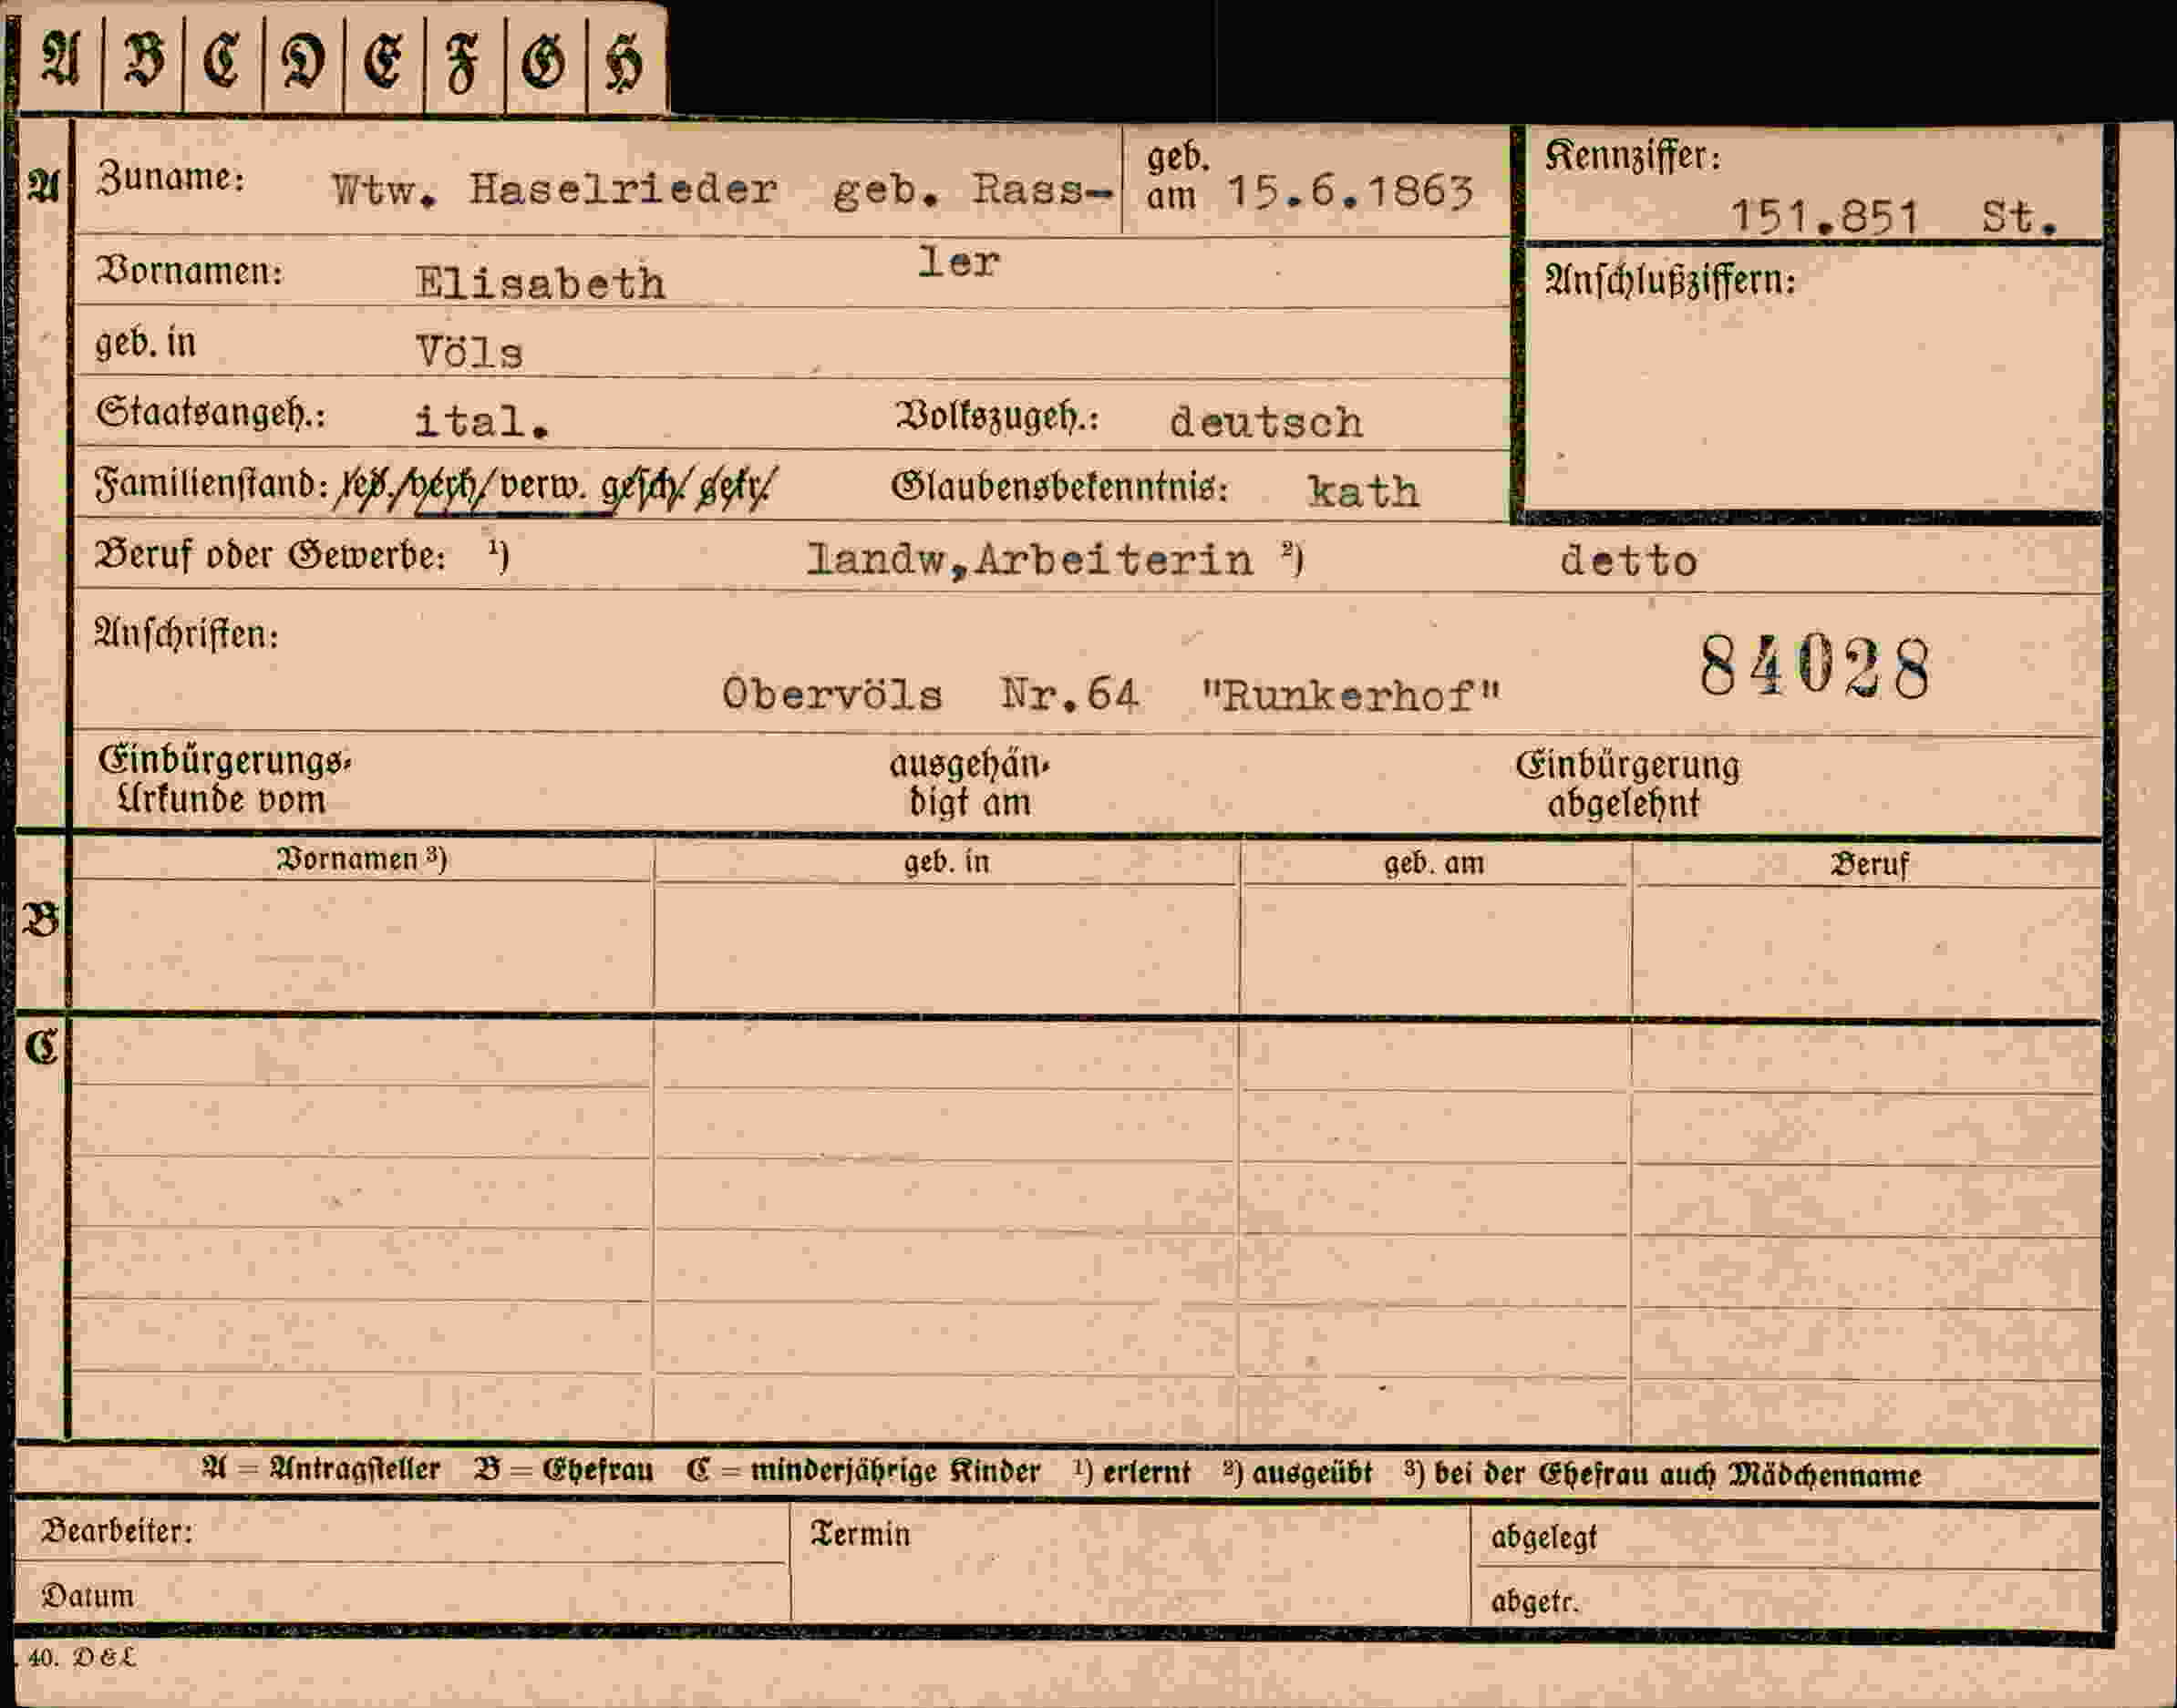 A B C D E F G H
A Zuname: Wtw. Haselrieder geb. Rass- geb. am 15.6.1863 Kennziffer: 151.851 St.
Vornamen: Elisabeth ler Anschlußziffern:
geb. in Völs
Staatsangeh.: ital. Volkszugeh.: deutsch
Familienstand: led./verh/verw. gesch/ getr/ Glaubensbekenntnis: kath
Beruf oder Gewerbe: ¹) landw,Arbeiterin ²) detto
Anschriften: 84028
Obervöls Nr.64 "Runkerhof"
Einbürgerungs- ausgehän- Einbürgerung
Urkunde vom digt am abgelehnt
Vornamen ³) geb. in geb. am Beruf
B
C
A = Antragsteller B = Ehefrau C = minderjährige Kinder ¹) erlernt ²) ausgeübt ³) bei der Ehefrau auch Mädchenname
Bearbeiter: Termin abgelegt
Datum abgetr.
40. D & L